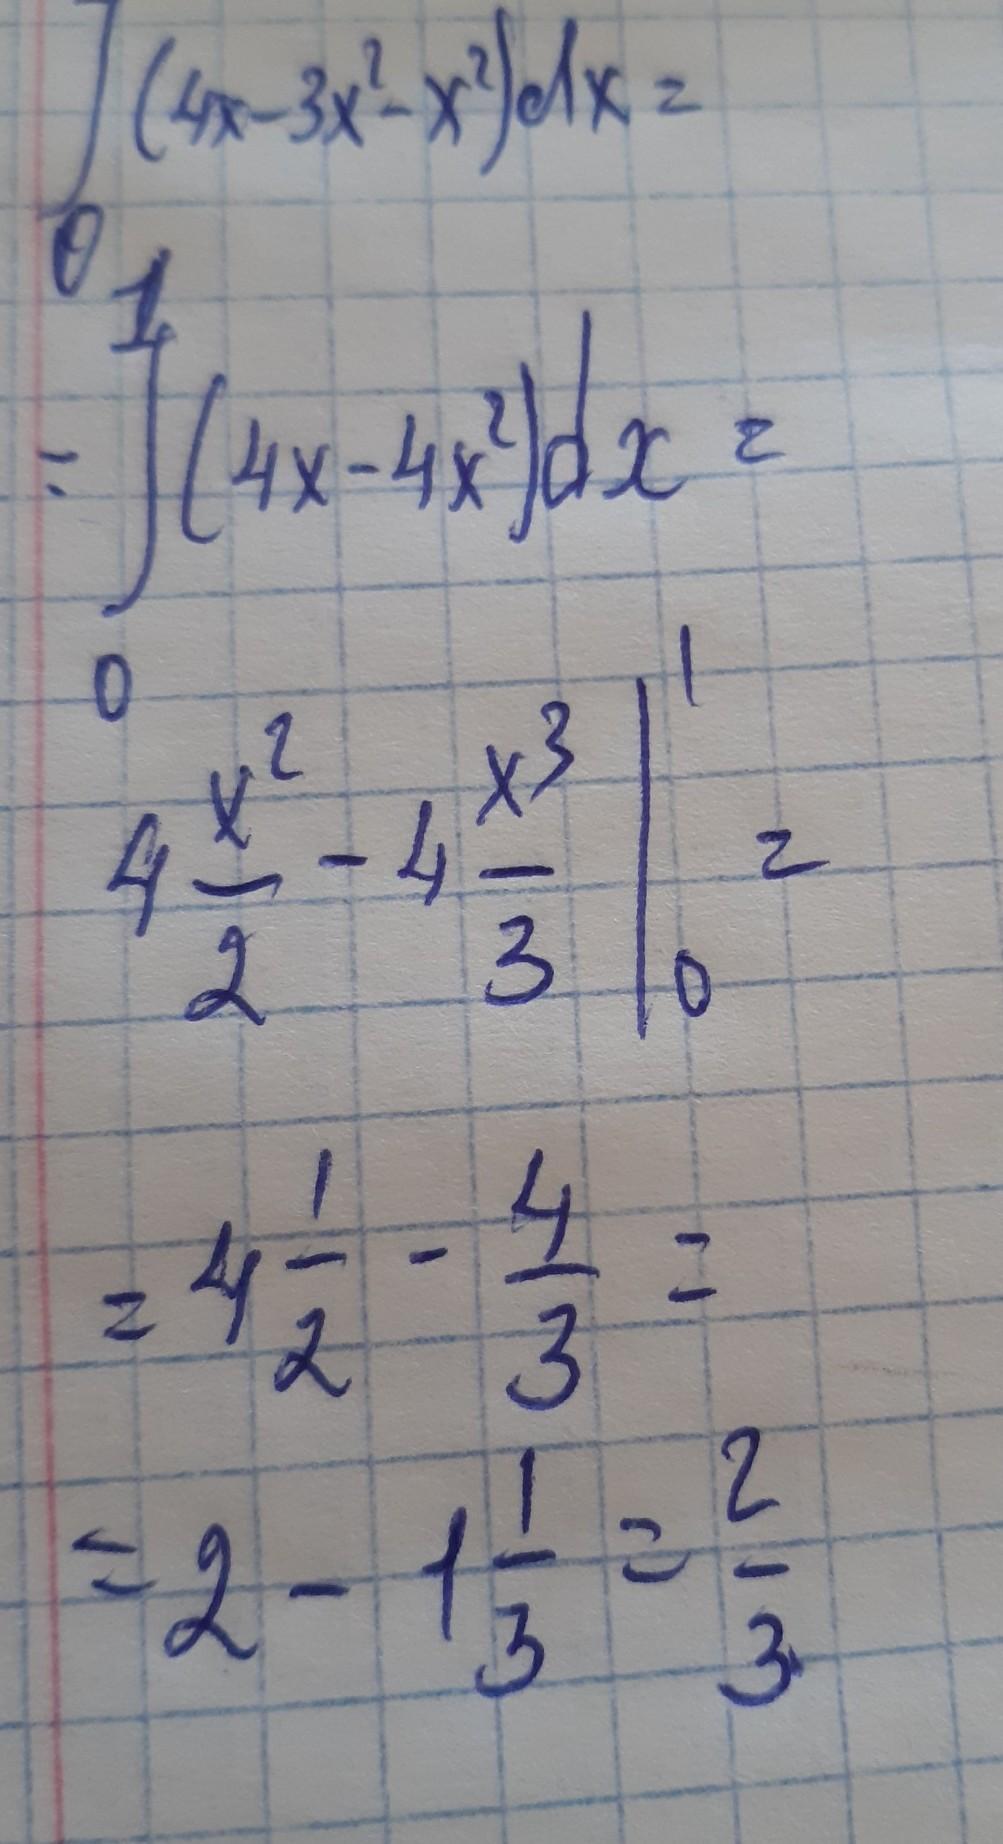 ∫ (4x-3x²-x²)dx =
0
1
= ∫ (4x-4x²)dx =
0
4 x²/2 - 4 x³/3 | 1 0 =
= 4 1/2 - 4/3 =
= 2 - 1 1/3 = 2/3